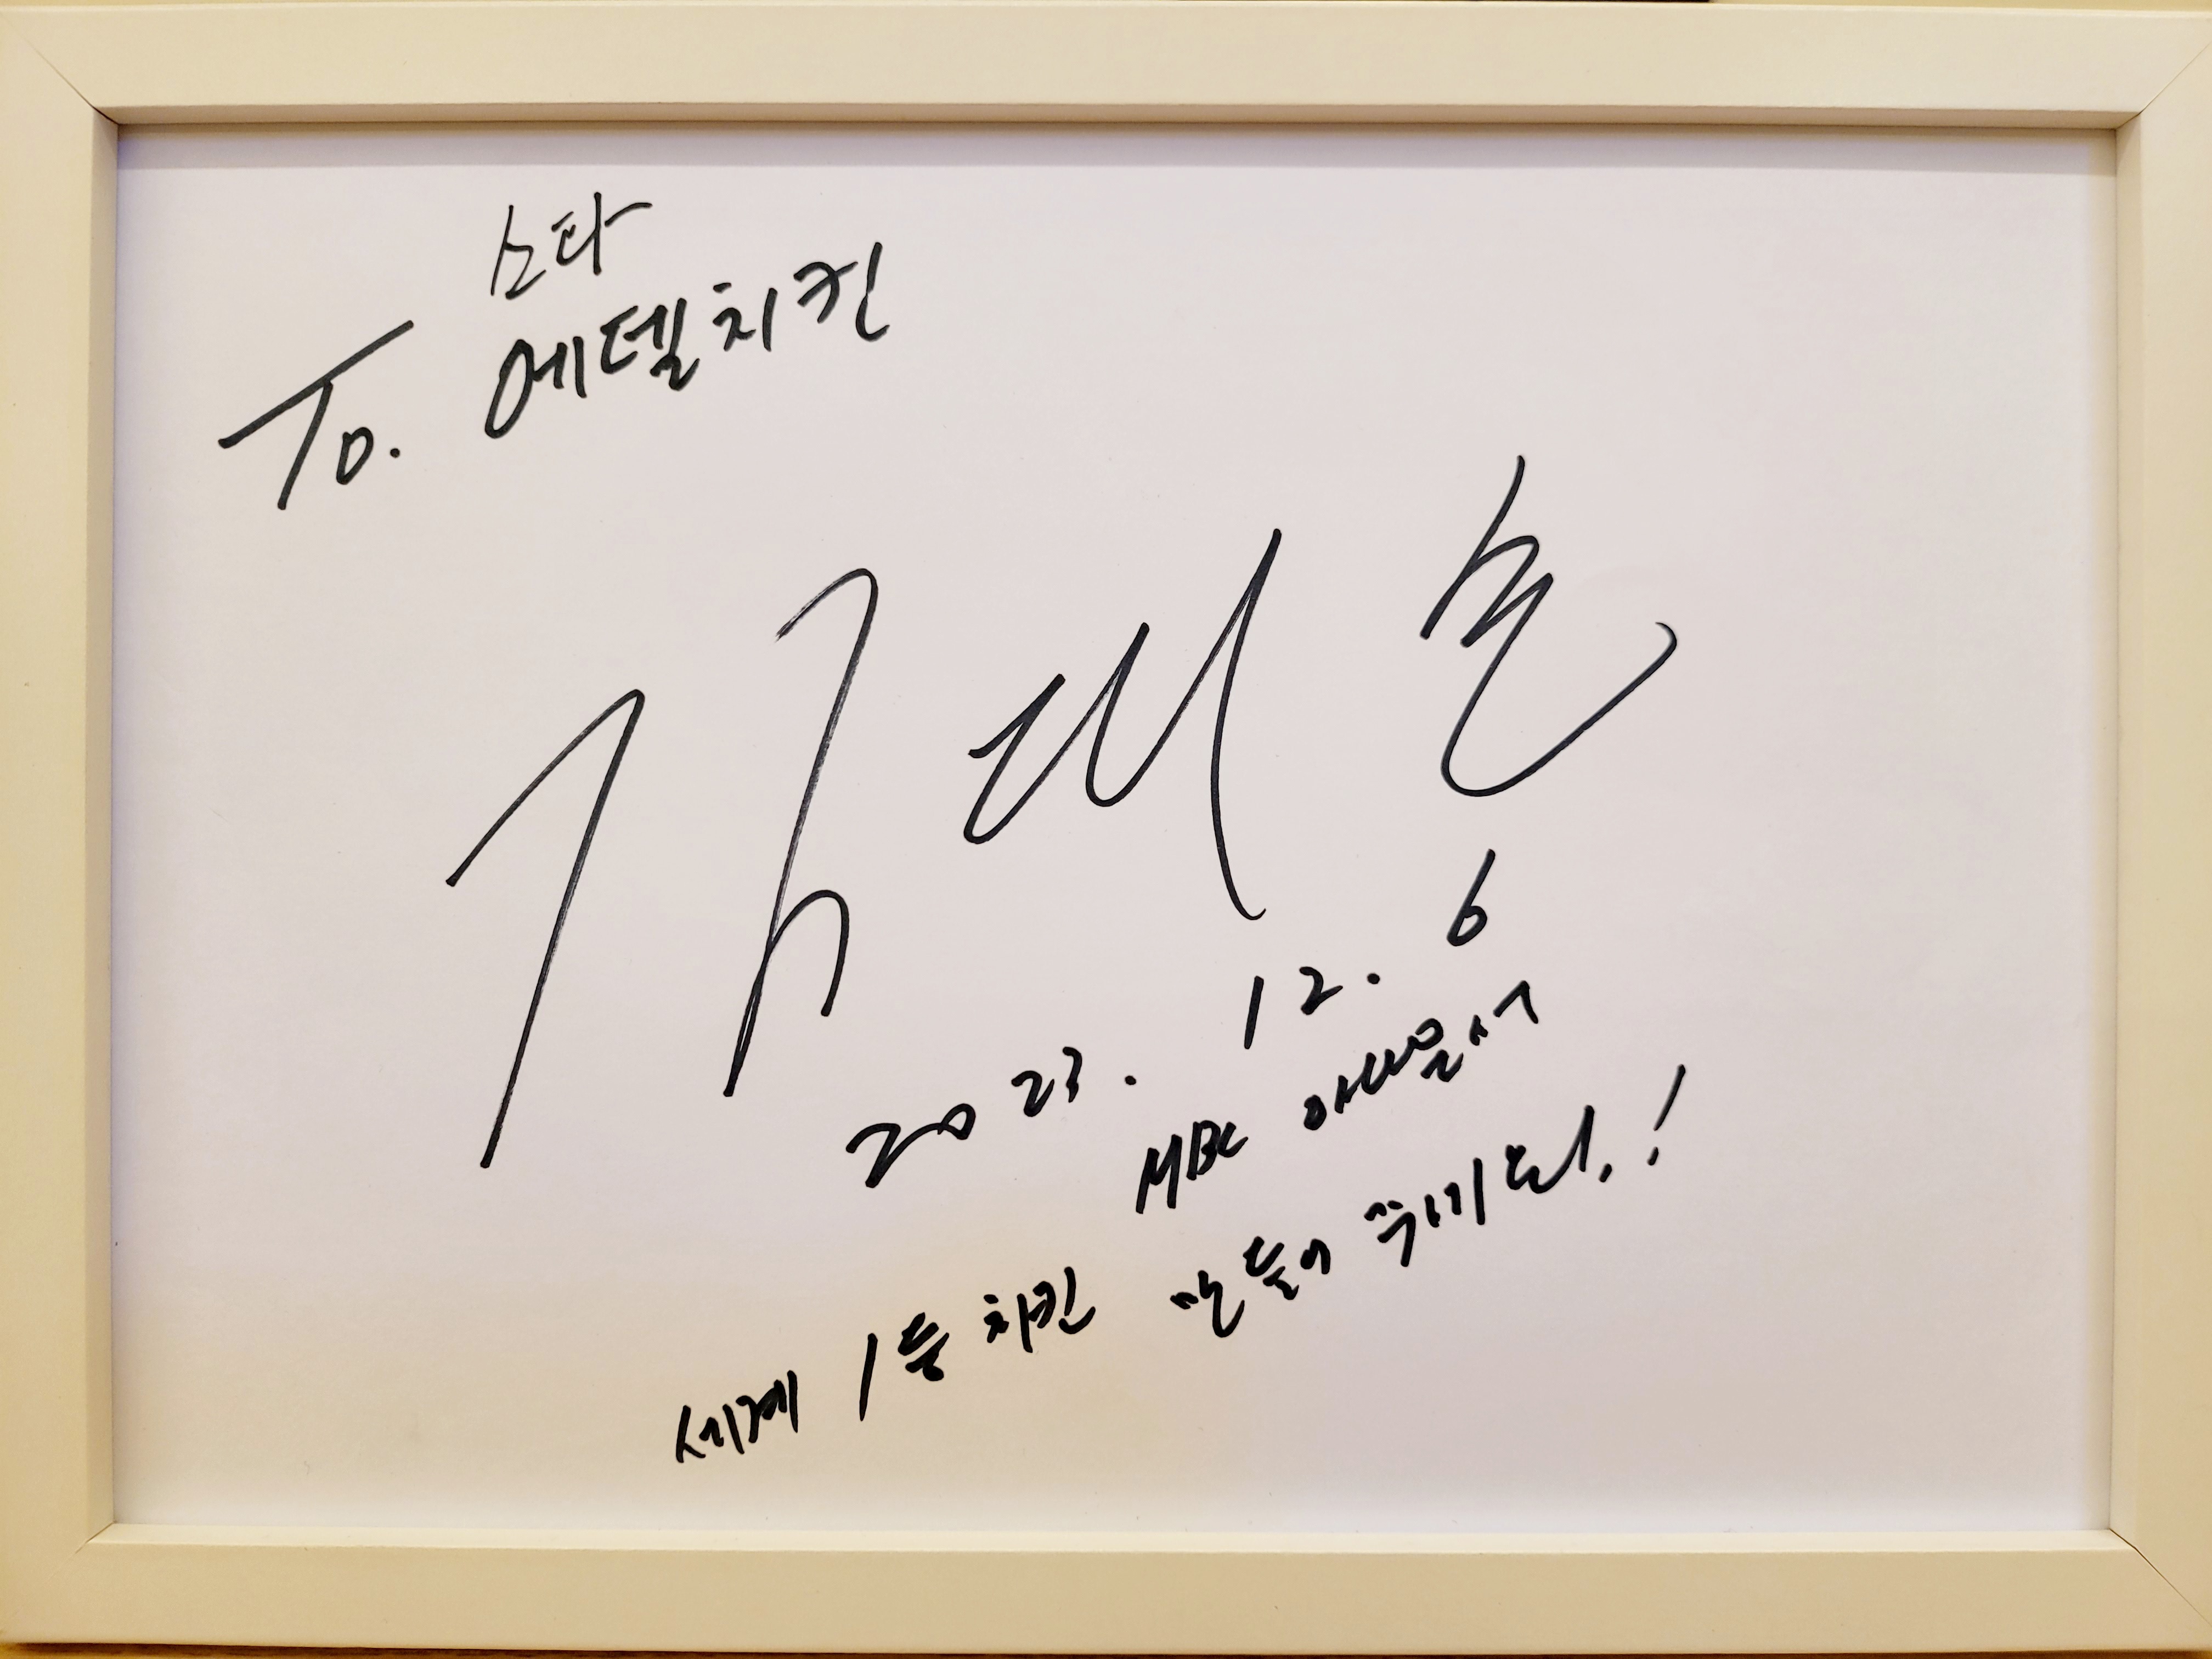 스타
To. 에델치킨
김대호
2023. 12. 6
MBC 아나운서
세계 1등 치킨 만들어 주세요!